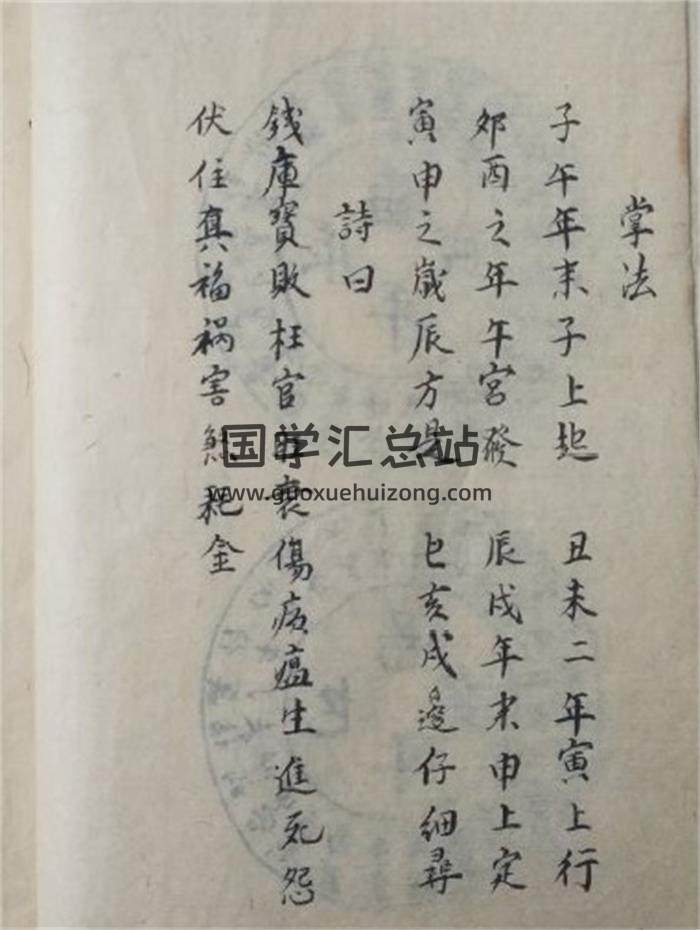 掌法
子午年来子上起 丑未二年寅上行
卯酉之年午宮發 辰戌年来申上定
寅申之歲辰方是 巳亥戌邊仔細尋
詩曰
錢庫寶敗枉官衰傷病瘟生進死怨
伏住真福祸害金
国学汇总站
www.guoxuehuizong.com